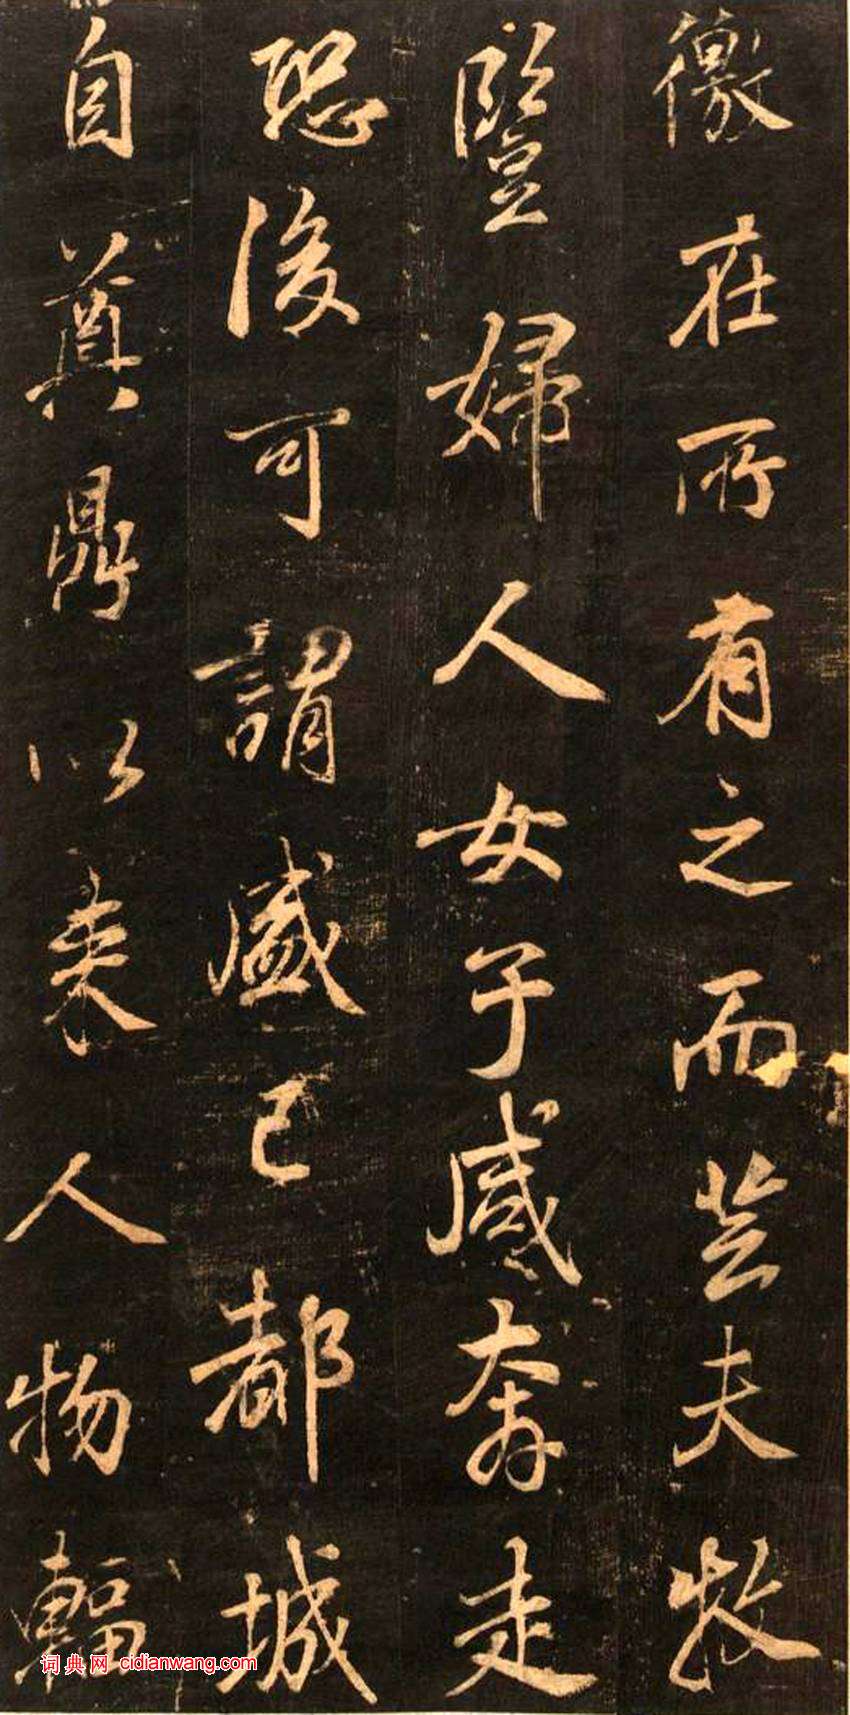 徼在所有之而芸夫牧
豎婦人女子咸奔走
恐後可謂盛已都城
自奠鼎以来人物輻
词典网 cidianwang.com